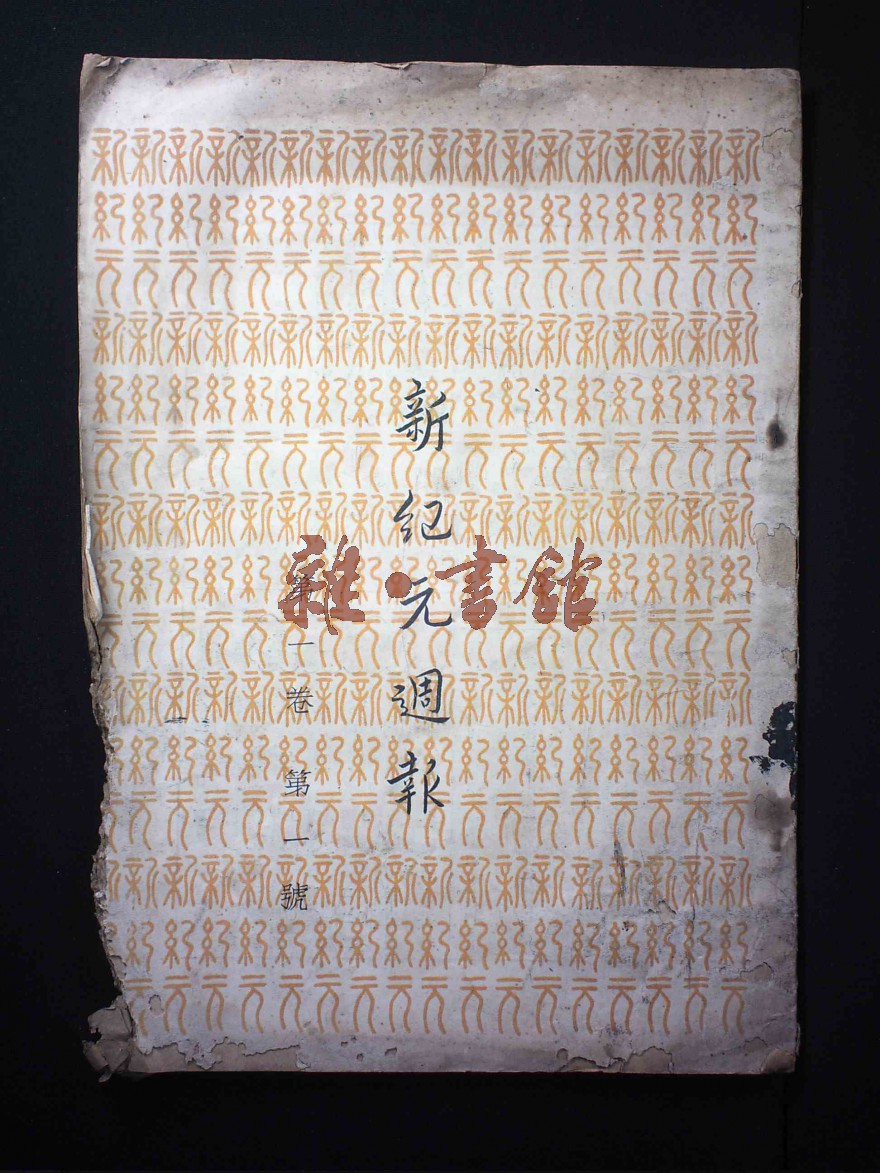 新紀元週報
第一卷第一號
雜·書館